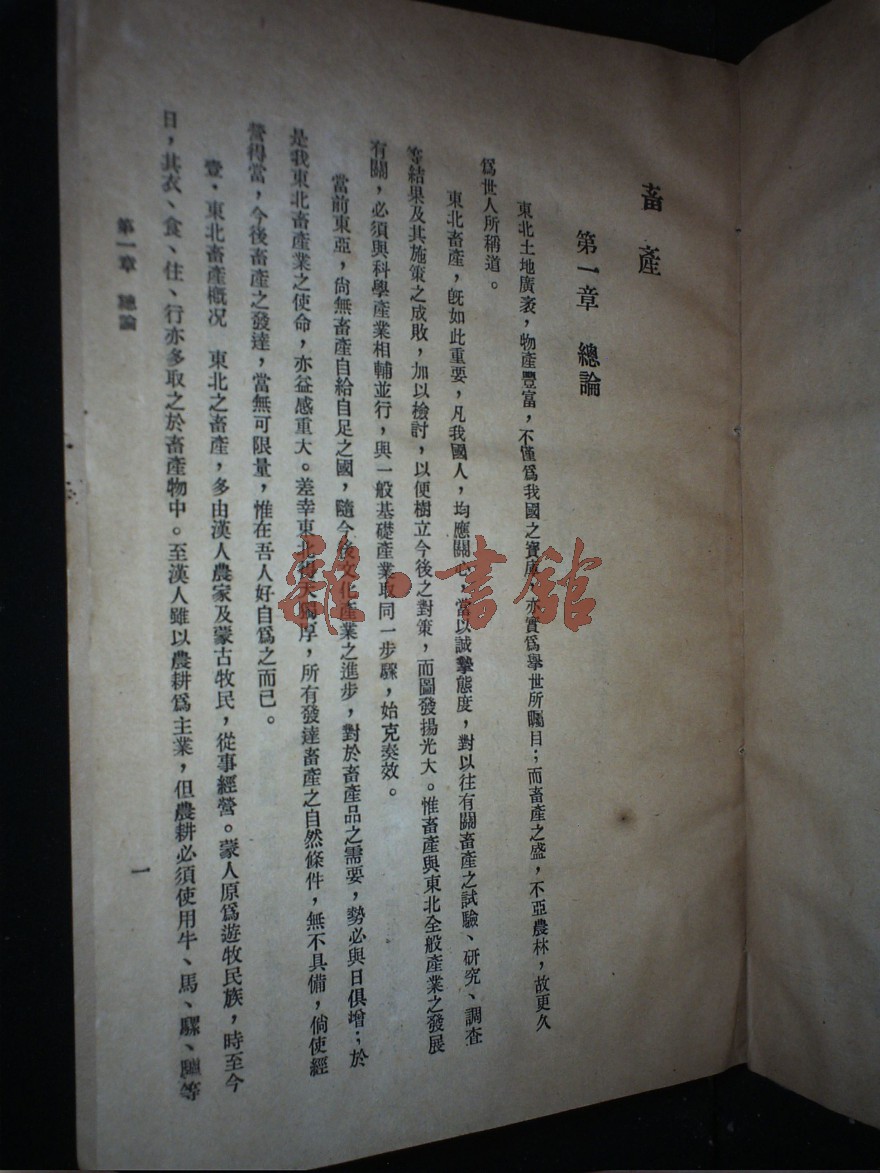 畜產
第一章 總論
東北土地廣袤，物產豐富，不僅爲我國之寶廣，亦實爲舉世所矚目；而畜產之盛，不亞農林，故更久
爲世人所稱道。
東北畜產，旣如此重要，凡我國人，均應關心，當以誠摯態度，對以往有關畜產之試驗、研究、調查
等結果及其施策之成敗，加以檢討，以便樹立今後之對策，而圖發揚光大。惟畜產與東北全般產業之發展
有關，必須與科學產業相輔並行，與一般基礎產業取同一步驟，始克奏效。
當前東亞，尙無畜產自給自足之國，隨今後文化產業之進步，對於畜產品之需要，勢必與日俱增；於
是我東北畜產業之使命，亦益感重大。差幸東北得天獨厚，所有發達畜產之自然條件，無不具備，倘使經
營得當，今後畜產之發達，當無可限量，惟在吾人好自爲之而已。
壹．東北畜產概況 東北之畜產，多由漢人農家及蒙古牧民，從事經營。蒙人原爲遊牧民族，時至今
日，其衣、食、住、行亦多取之於畜產物中。至漢人雖以農耕爲主業，但農耕必須使用牛、馬、騾、驢等
第一章 總論
一
雜·書館